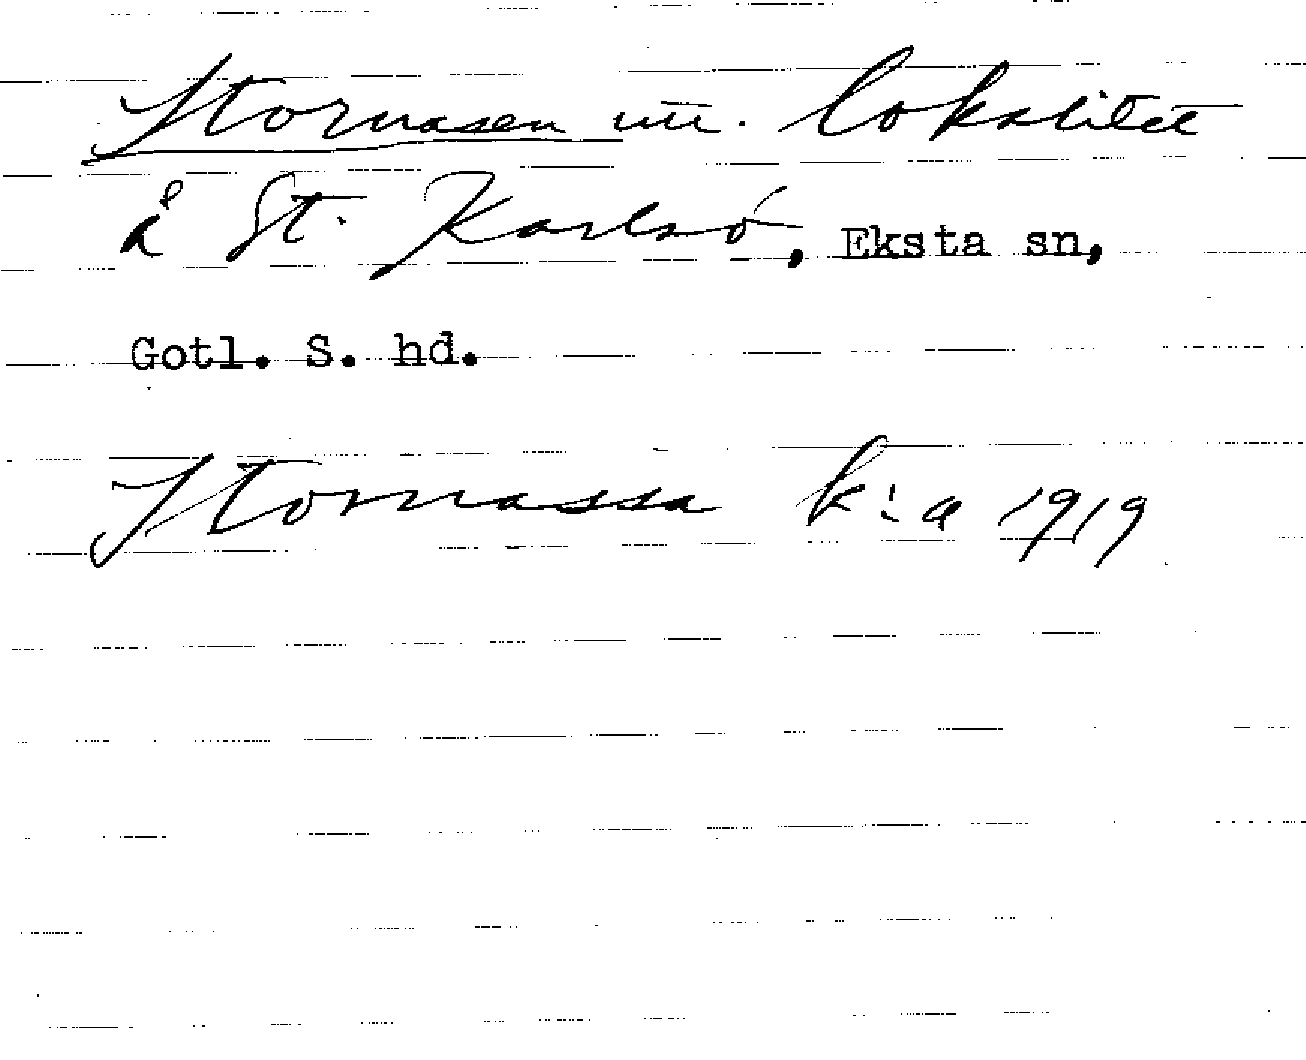 Stornasen nu. lokalitet
å St. Karlsö, Eksta sn,
Gotl. S. hd.
Stornassa k:a 1919